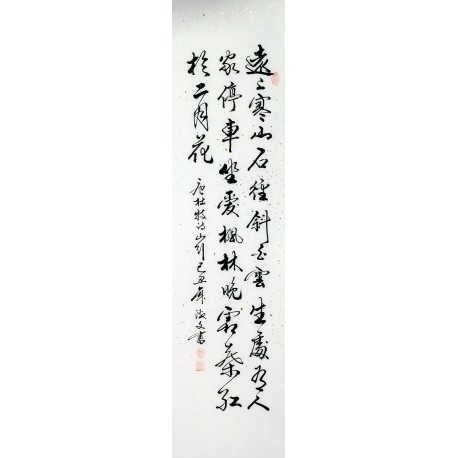 遠上寒山石徑斜白雲生處有人
家停車坐愛楓林晚霜葉紅
於二月花
唐杜牧詩山行己丑年淑文書